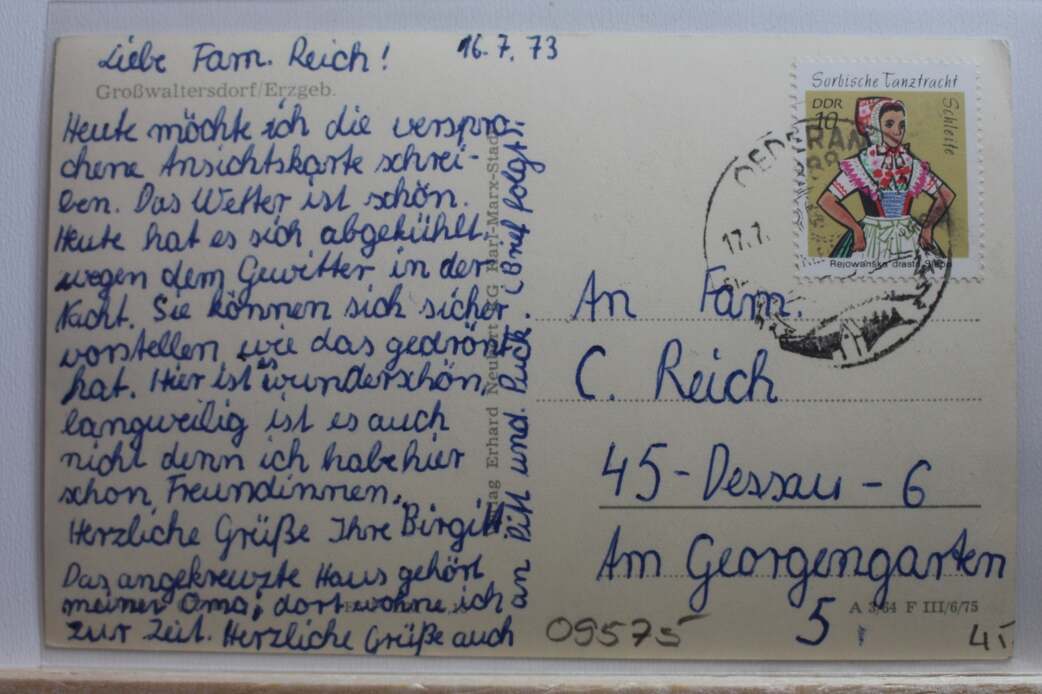 Liebe Fam. Reich!
16.7.73
Großwaltersdorf/Erzgeb.
Heute möchte ich die verspro-
chene Ansichtskarte schrei-
ben. Das Wetter ist schön.
Heute hat es sich abgekühlt
wegen dem Gewitter in der
Nacht. Sie können sich sicher
vorstellen, wie das gedrönt
hat. Hier ist es wunderschön,
langweilig ist es auch
nicht denn ich habe hier
schon Freundinnen.
Herzliche Grüße Ihre Birgitt
Das angekreuzte Haus gehört
meiner Oma; dort wohne ich
zur Zeit. Herzliche Grüße auch
an Pitt und Puck (Brief folgt)
Erhard Neubert KG Karl-Marx-Stadt
Sorbische Tanztracht
DDR
10
Schleife
Rejowanska drasta
OEDERAN
17.7.
An Fam.
C. Reich
45-Dessau-6
Am Georgengarten
5
A 3/64 F III/6/75
09575